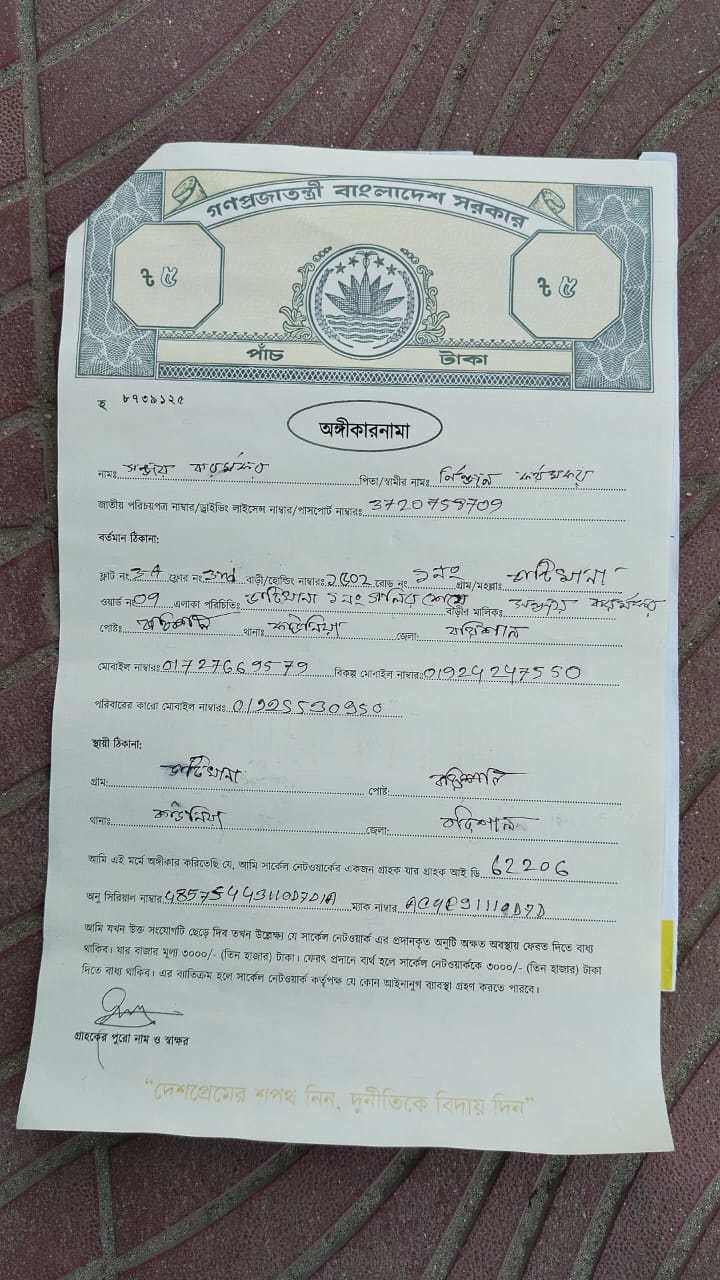 গণপ্রজাতন্ত্রী বাংলাদেশ সরকার
৳ ৫ ৳ ৫
পাঁচ টাকা
হ ৮৭৩৯১২৫
অঙ্গীকারনামা
নামঃ সঞ্জয় কর্মকার পিতা/স্বামীর নামঃ কর্মকার
জাতীয় পরিচয়পত্র নাম্বার/ড্রাইভিং লাইসেন্স নাম্বার/পাসপোর্ট নাম্বারঃ 3720758709
বর্তমান ঠিকানা:
ফ্লাট নং 3A ফ্লোর নং 3nd বাড়ী/হোল্ডিং নাম্বারঃ রোড নং ১নং গ্রাম/মহল্লাঃ ভাটিখানা
ওয়ার্ড নং 09 এলাকা পরিচিতিঃ ভাটিখানা ১নং গলির শেষে বাড়ীর মালিকঃ সঞ্জয় কর্মকার
পোষ্টঃ বরিশাল থানাঃ কাউনিয়া জেলা: বরিশাল
মোবাইল নাম্বারঃ 01727669579 বিকল্প মোবাইল নাম্বারঃ 01924247550
পরিবারের কারো মোবাইল নাম্বারঃ 01925530950
স্থায়ী ঠিকানা:
গ্রাম: ভাটিখানা পোষ্ট: বরিশাল
থানাঃ কাউনিয়া জেলা: বরিশাল
আমি এই মর্মে অঙ্গীকার করিতেছি যে, আমি সার্কেল নেটওয়ার্কের একজন গ্রাহক যার গ্রাহক আই ডি 62206
অনু সিরিয়াল নাম্বার 48575443110D7D1A ম্যাক নাম্বার
আমি যখন উক্ত সংযোগটি ছেড়ে দিব তখন উল্লেক্ষ্য যে সার্কেল নেটওয়ার্ক এর প্রদানকৃত অনুটি অক্ষত অবস্থায় ফেরত দিতে বাধ্য
থাকিব। যার বাজার মূল্য ৩০০০/- (তিন হাজার) টাকা। ফেরৎ প্রদানে ব্যর্থ হলে সার্কেল নেটওয়ার্ককে ৩০০০/- (তিন হাজার) টাকা
দিতে বাধ্য থাকিব। এর ব্যাতিক্রম হলে সার্কেল নেটওয়ার্ক কর্তৃপক্ষ যে কোন আইনানুগ ব্যাবস্থা গ্রহণ করতে পারবে।
গ্রাহকের পুরো নাম ও স্বাক্ষর
“দেশপ্রেমের শপথ নিন, দুর্নীতিকে বিদায় দিন”